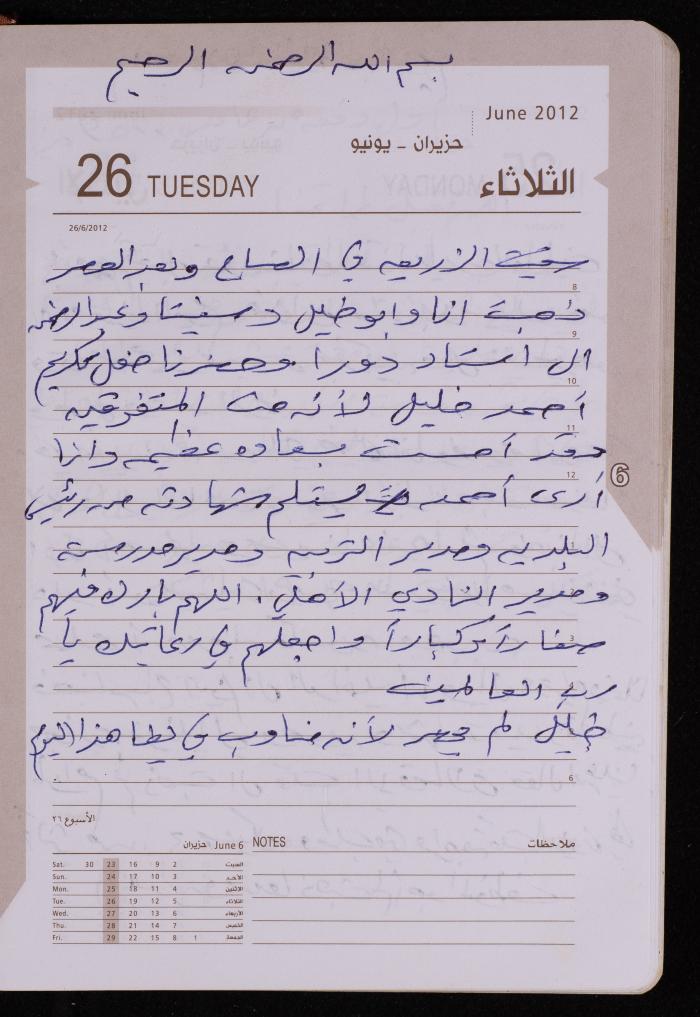 بسم الله الرحمن الرحيم
June 2012
حزيران - يونيو
26 TUESDAY الثلاثاء
26/6/2012
سقيت الزريعه في الصباح وبعد العصر
8
ذهبت انا وابو خليل و وعبد الرحمن
9
الى استاد دورا وحضرنا حفل تكريم
10
أحمد خليل لأنه من المتفوقين
11
وقد أحسست بسعاده عظيمه وانا
12
أرى أحمد يستلم شهادته من رئيس
6
البلديه ومدير التربيه ومدير مدرسته
ومدير النادي الأهلي. اللهم بارك فيهم
صغاراً وكباراً واجعلهم في رعايتك يا
3
رب العالمين
خليل لم يحضر لأنه مناوب في يطا هذا اليوم
6
الأسبوع ٢٦
June 6 حزيران
NOTES ملاحظات
Sat. 30 23 16 9 2 السبت
Sun. 24 17 10 3 الأحد
Mon. 25 18 11 4 الاثنين
Tue. 26 19 12 5 الثلاثاء
Wed. 27 20 13 6 الأربعاء
Thu. 28 21 14 7 الخميس
Fri. 29 22 15 8 1 الجمعة